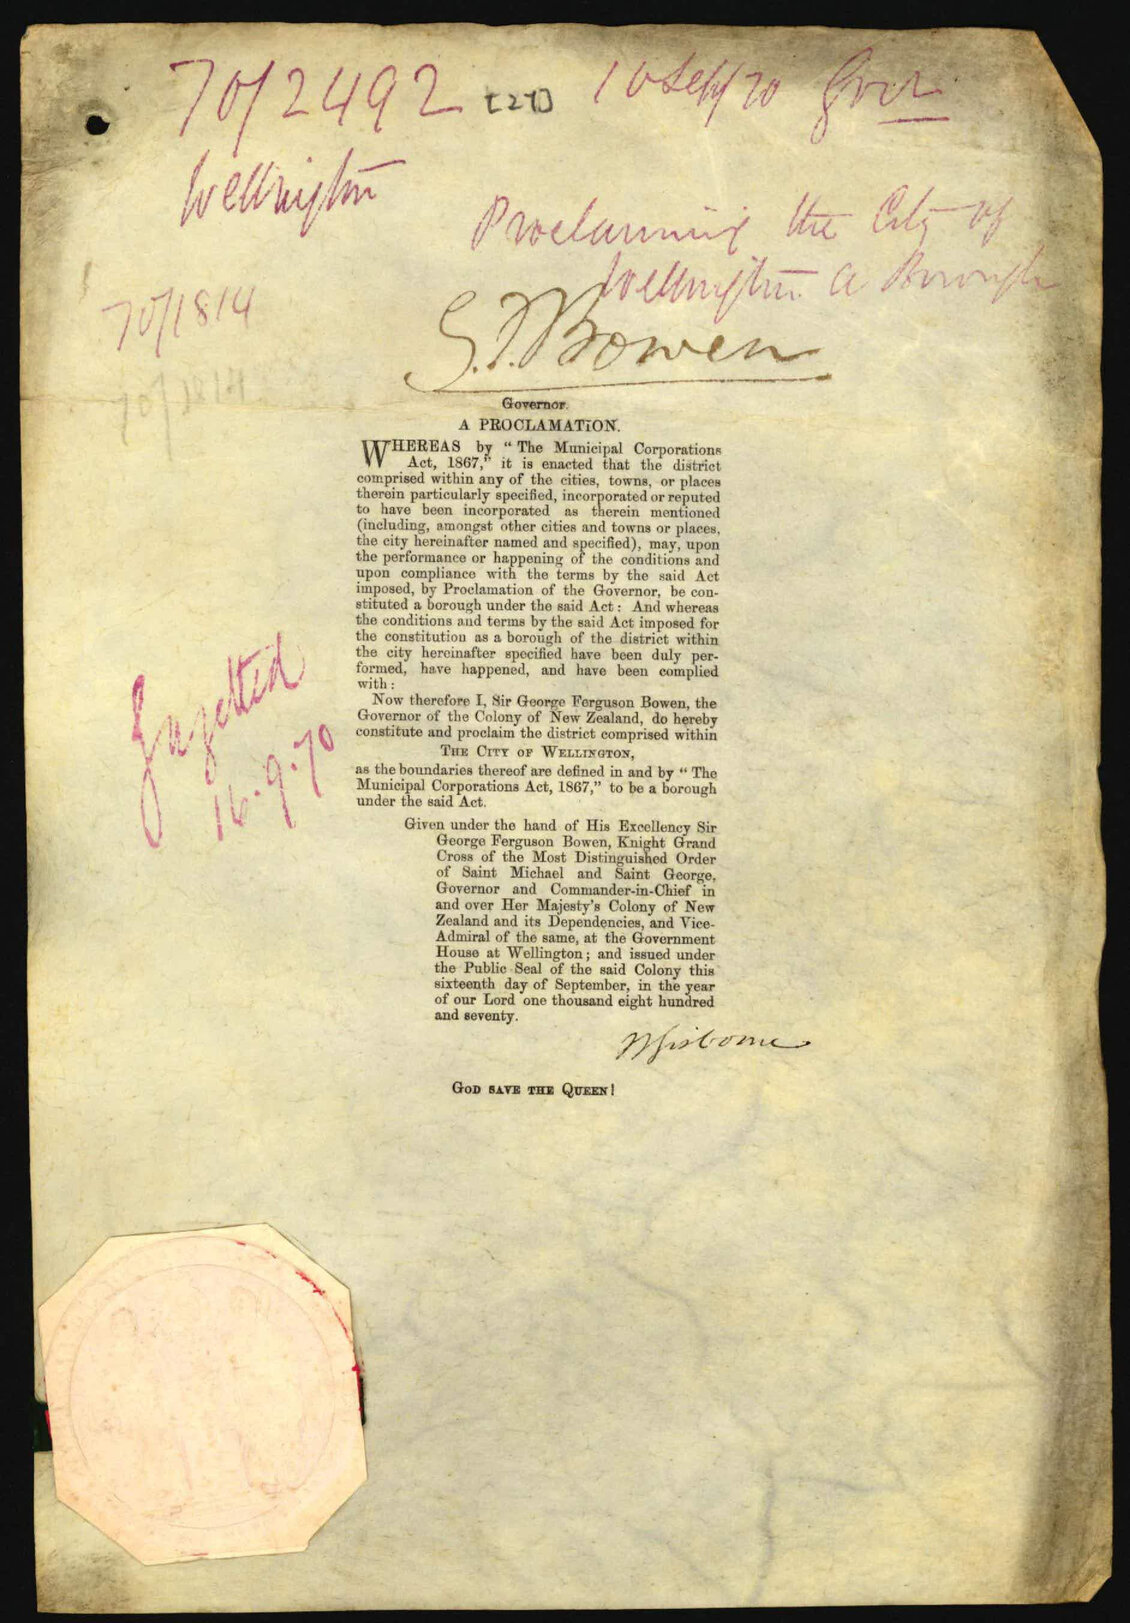 70/2492 [27] 16 Sept/70 Govr
Wellington
Proclaiming the City of
Wellington a Borough
70/1814
70/1814
G.F. Bowen
Governor.
A PROCLAMATION.
WHEREAS by “ The Municipal Corporations
Act, 1867,” it is enacted that the district
comprised within any of the cities, towns, or places
therein particularly specified, incorporated or reputed
to have been incorporated as therein mentioned
(including, amongst other cities and towns or places,
the city hereinafter named and specified), may, upon
the performance or happening of the conditions and
upon compliance with the terms by the said Act
imposed, by Proclamation of the Governor, be con-
stituted a borough under the said Act : And whereas
the conditions and terms by the said Act imposed for
the constitution as a borough of the district within
the city hereinafter specified have been duly per-
formed, have happened, and have been complied
with :
Now therefore I, Sir George Ferguson Bowen, the
Governor of the Colony of New Zealand, do hereby
constitute and proclaim the district comprised within
THE CITY OF WELLINGTON,
as the boundaries thereof are defined in and by “ The
Municipal Corporations Act, 1867,” to be a borough
under the said Act.
Gazetted
16.9.70
Given under the hand of His Excellency Sir
George Ferguson Bowen, Knight Grand
Cross of the Most Distinguished Order
of Saint Michael and Saint George,
Governor and Commander-in-Chief in
and over Her Majesty's Colony of New
Zealand and its Dependencies, and Vice-
Admiral of the same, at the Government
House at Wellington ; and issued under
the Public Seal of the said Colony this
sixteenth day of September, in the year
of our Lord one thousand eight hundred
and seventy.
W Gisborne
GOD SAVE THE QUEEN !